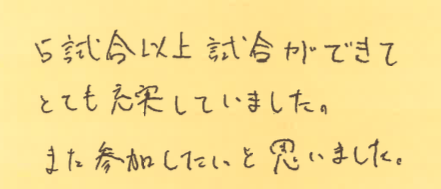 5試合以上試合ができて
とても充実していました。
また参加したいと思いました。